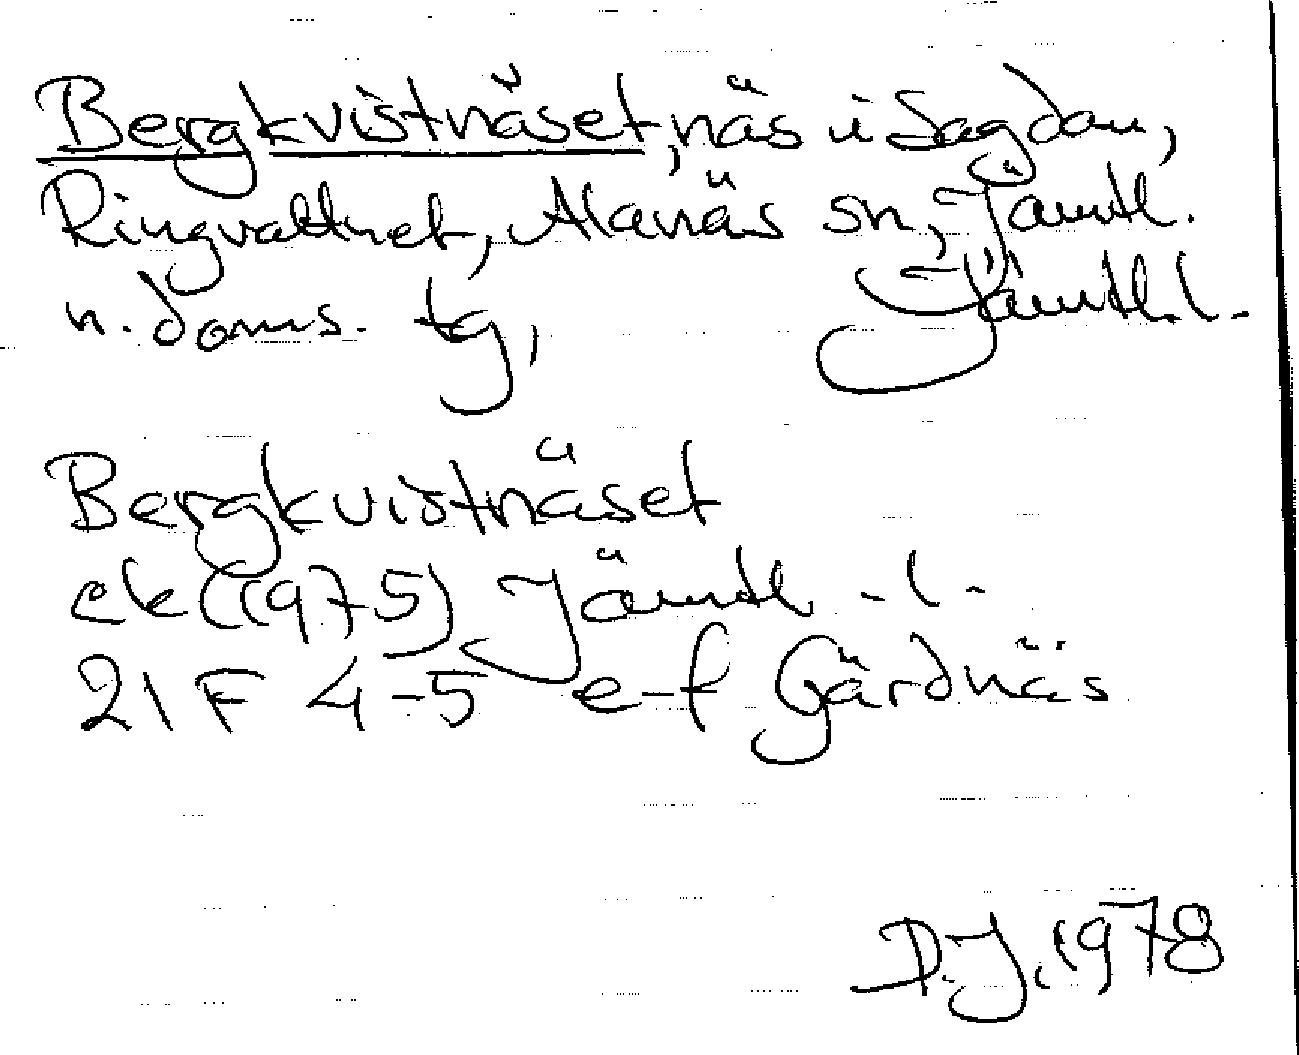 Bergkvistnäset, näs i Sagdan,
Ringvattnet, Alanäs sn, Jämtl.
n. doms. tg, Jämtl. l.
Bergkvistnäset
ek (1975) Jämtl. l.
21 F 4-5 e-f Gärdnäs
D.J. 1978